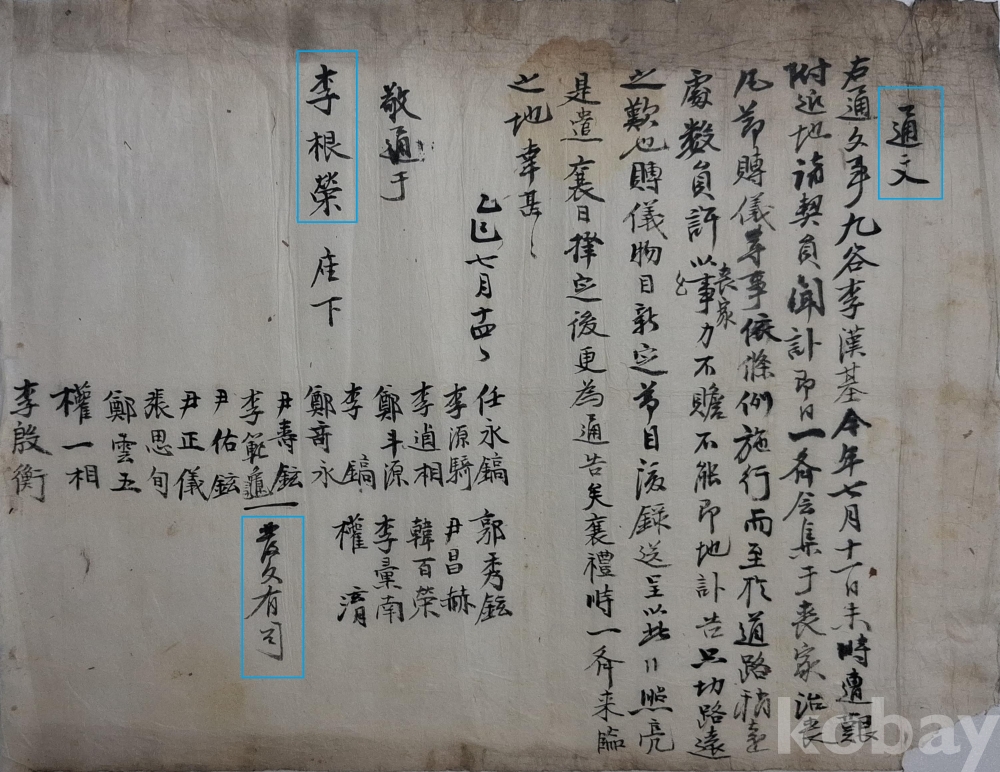 通文
右通文事九谷李漢基今年七月十一日未時遭艱
附近地諸契員聞訃即日一齊會集于喪家治喪
凡節賻儀等事依條例施行而至於道路稍遠
處數員許以喪家事力不贍不能即地訃告只切路遠
之歎也賻儀物目新定節目後錄送呈以此〃照亮
是遣襄日擇定後更為通告矣襄禮時一齊来臨
之地幸甚〃
乙巳七月十四〃
敬通于
李根榮 座下
任永鎬 郭秀鉉
李源騎 尹昌赫
李逌相 韓百榮
鄭斗源 李彙南
李鎬 權濟
鄭奇永
尹壽鉉
李範龜 發文有司
尹佑鉉
尹正儀
張思旬
鄭雲五
權一相
李殷衡
kobay